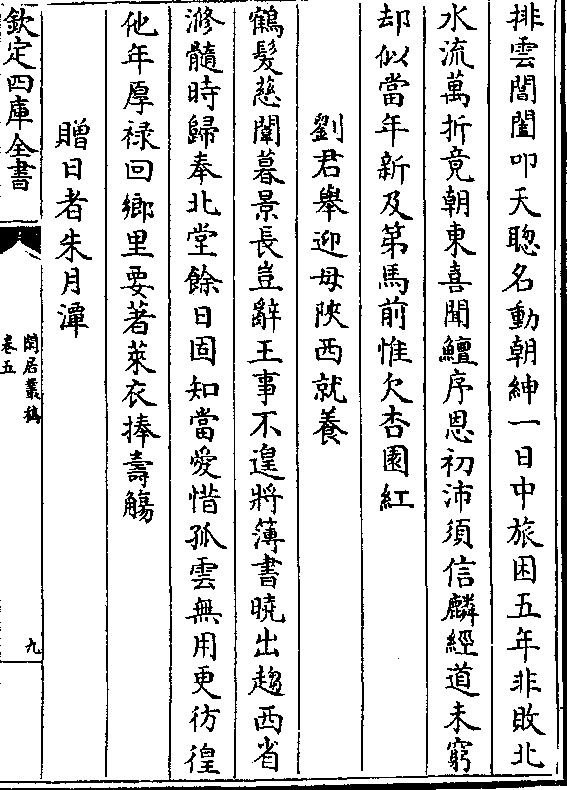 排雲閶闔叩天聰名動朝紳一日中旅困五年非敗北
水流萬折竟朝東喜聞鱣序恩初沛須信麟經道未窮
却似當年新及第馬前惟欠杏園紅
劉君舉迎母陜西就養
鶴髮慈闈暮景長豈辭王事不遑將薄書曉出趨西省
滫髓時歸奉北堂餘日固知當愛惜孤雲無用更彷徨
他年厚禄回鄉里要著萊衣捧壽觴
贈日者朱月潭
欽定四庫全書
閒居叢稿
卷五
九